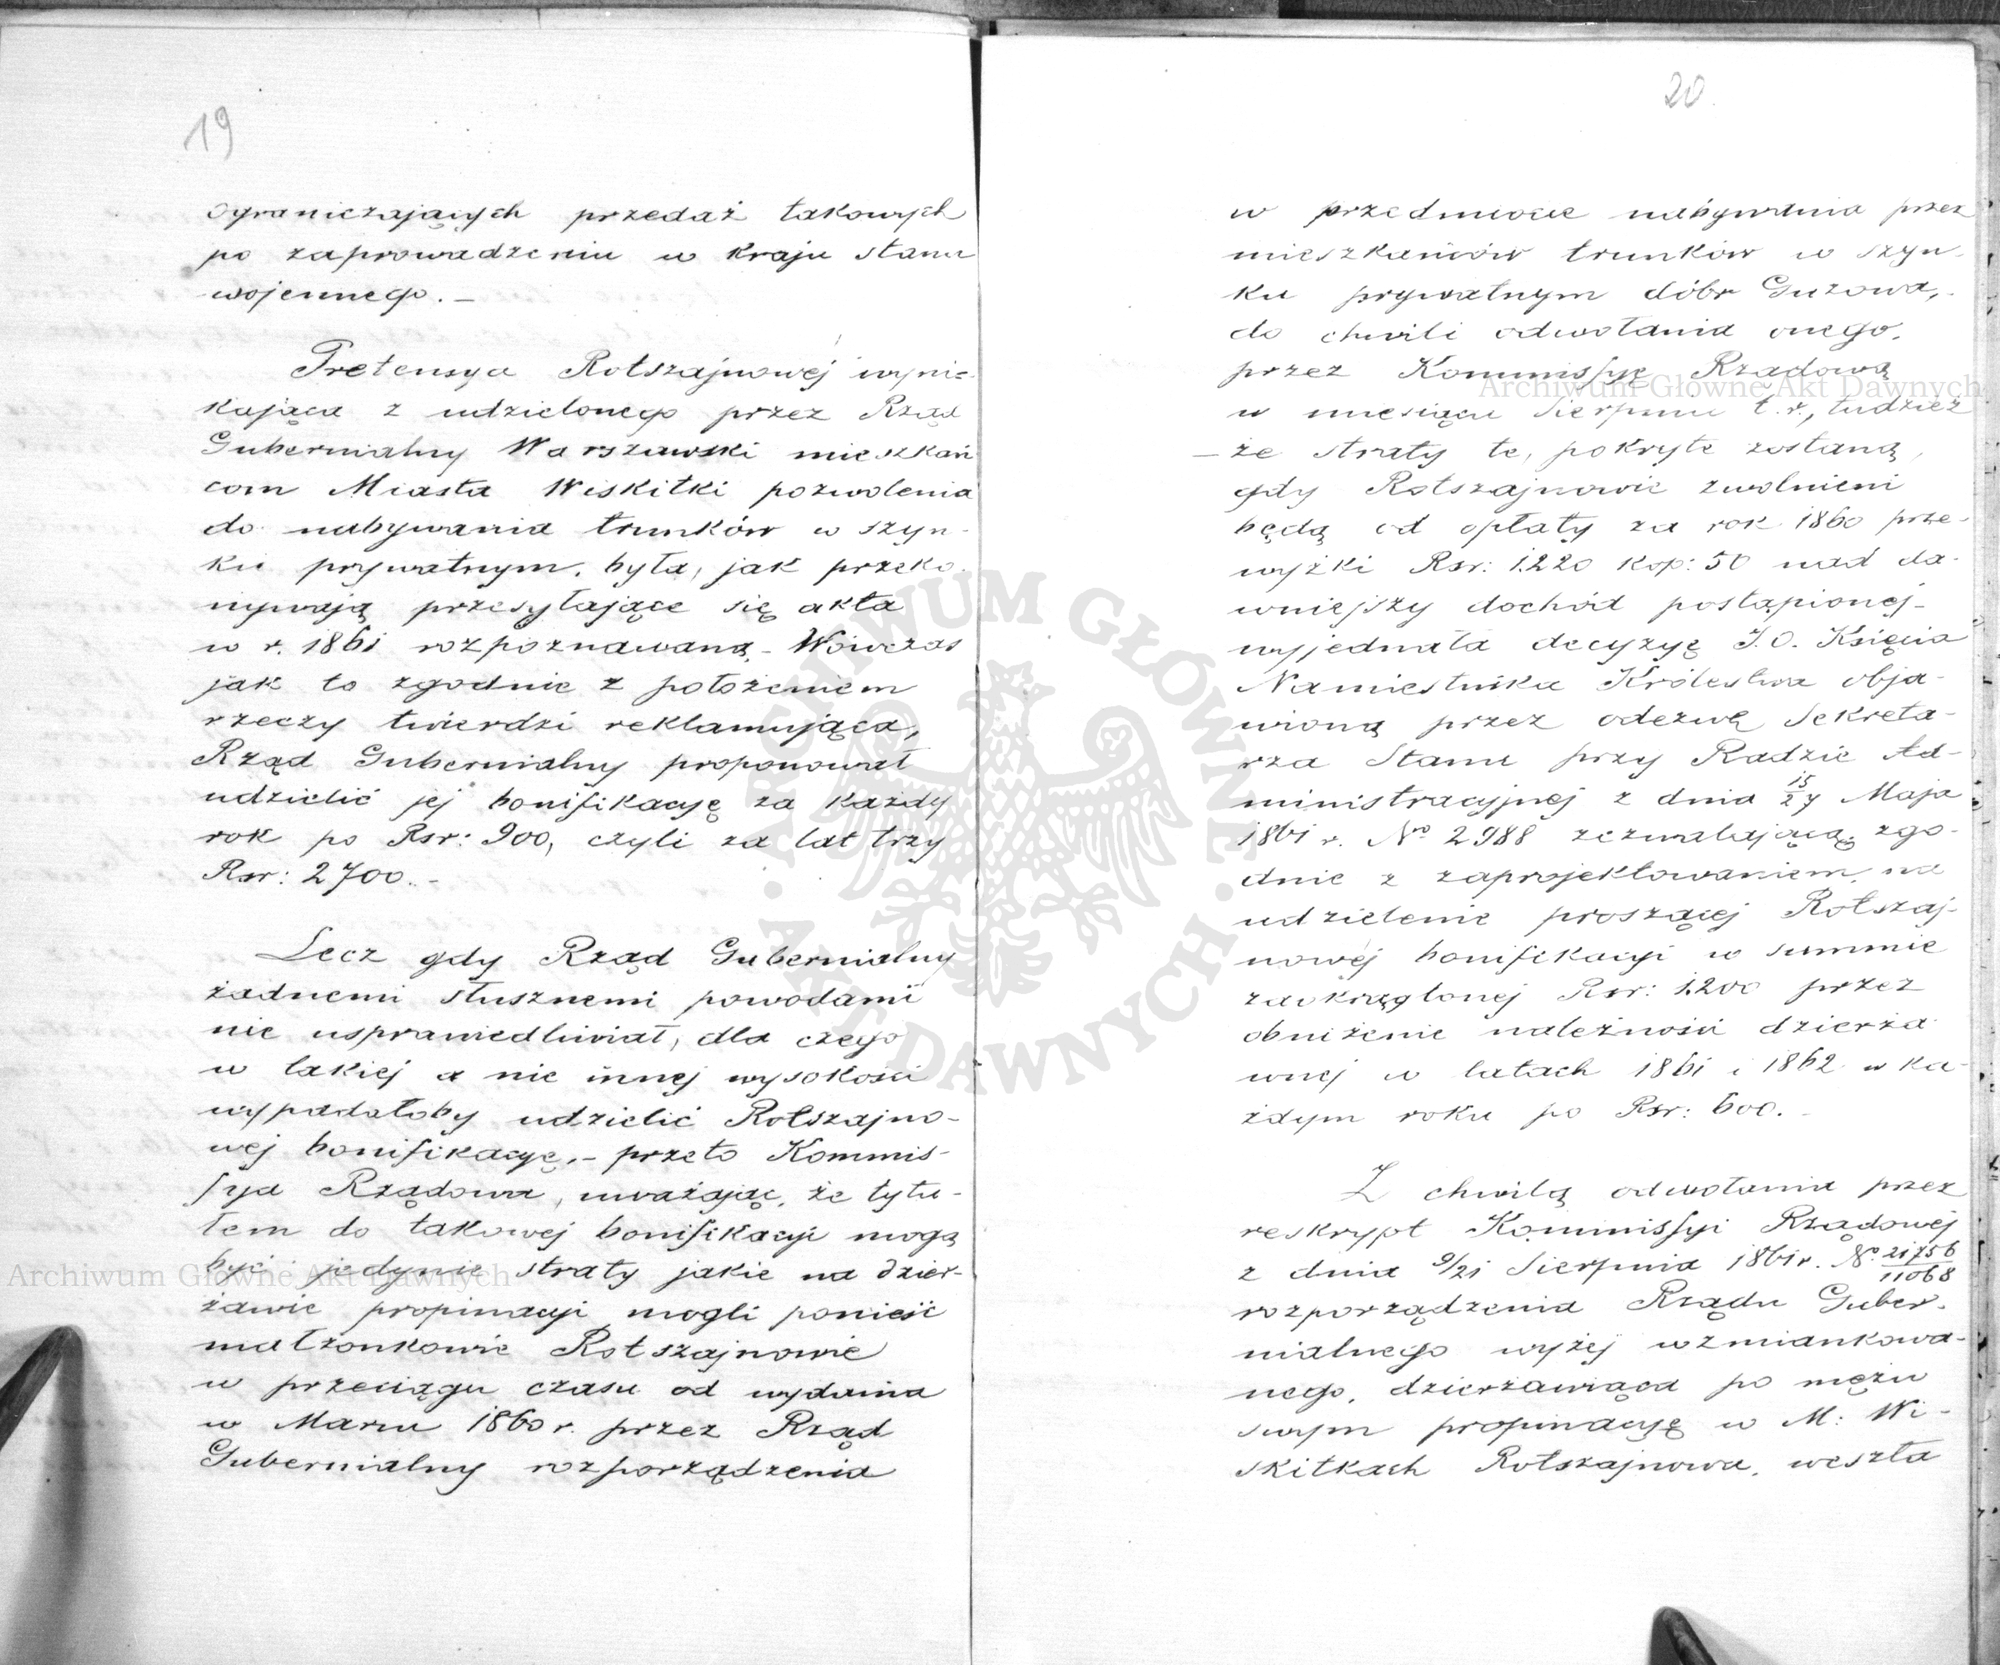 19
ograniczających przedaż takowych
po zaprowadzeniu w Kraju stanu
wojennego. –
Pretensya Rotszajnowéj wyni=
kająca z udzielonego przez Rząd
Gubernialny Warszawski mieszkań
com Miasta Wiskitki pozwolenia
do nabywania trunków w szyn-
ku prywatnym, była, jak przeko-
nywają przesyłające się akta
w r. 1861 rozpoznawaną. – Wówczas
jak to zgodnie z położeniem
rzeczy twierdzi reklamująca,
Rząd Gubernialny proponował
udzielić jej bonifikacyę za każdy
rok po Rsr: 900, czyli za lat trzy
Rsr: 2700. –
Lecz gdy Rząd Gubernialny
żadnemi słusznemi powodami
nie usprawiedliwiał, dla czego
w takiej a nie innej wysokości
wypadałoby udzielić Rotszajno-
wej bonifikacyę, – przeto Kommis-
sya Rządowa, uważając, że tytu-
łem do takowej bonifikacyi mogą
być jedynie straty jakie na dzier-
żawie propinacyi mogli ponieść
małżonkowie Rotszajnowie
w przeciągu czasu od wydania
w Marcu 1860 r. przez Rząd
Gubernialny rozporządzenia
20.
w przedmiocie nabywania przez
mieszkańców trunków w szyn-
ku prywatnym dóbr Guzowa,
do chwili odwołania onego,
przez Kommissyę Rządową
w miesiącu Sierpniu t. r., tudzież
– że straty te, pokryte zostaną,
gdy Rotszajnowie zwolnieni
będą od opłaty za rok 1860 prze-
wyżki Rsr: 1220 kop: 50 nad da-
wniejszy dochód postąpionej –
wyjednała decyzyę J. O. Księcia
Namiestnika Królestwa obja-
wioną przez odezwę Sekreta-
rza Stanu przy Radzie Ad-
ministracyjnej z dnia 15/27 Maja
1861 r. No 2988 zezwalającą, zgo-
dnie z zaprojektowaniem, na
udzielenie proszącej Rotszaj-
nowéj bonifikacyi w summie
zaokrąglonej Rsr: 1200 przez
obniżenie należności dzierża
wnej w latach 1861 i 1862 w ka-
żdym roku po Rsr: 600. –
Z chwilą odwołania przez
reskrypt Kommissyi Rządowéj
z dnia 9/21 Sierpnia 1861 r. No 21756/11068
rozporządzenia Rządu Guber-
nialnego wyżej wzmiankowa-
nego, dzierżawiąca po mężu
swym propinacyę w M: Wi-
skitkach Rotszajnowa, weszła
A · ARCHIWUM GŁÓWNE · AKT DAWNYCH ·
Archiwum Główne Akt Dawnych
Archiwum Główne Akt Dawnych